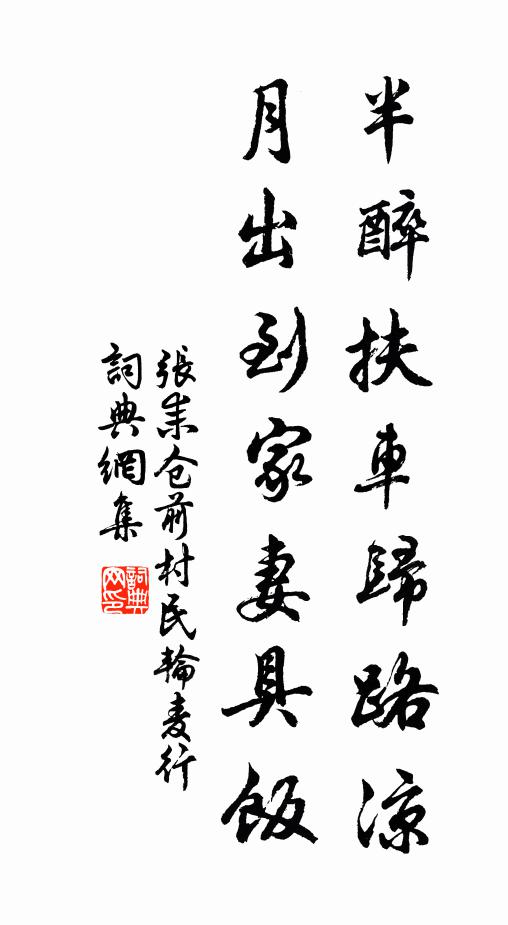 半醉扶車歸路涼
月出到家妻具飯
張耒仓前村民輪麦行
詞典網集
詞典網印